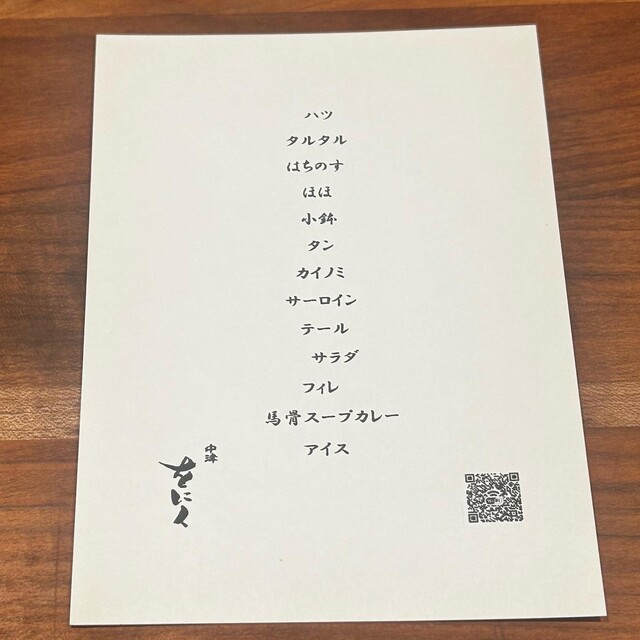 ハツ
タルタル
はちのす
ほほ
小鉢
タン
カイノミ
サーロイン
テール
サラダ
フィレ
馬骨スープカレー
アイス
中津
をにく